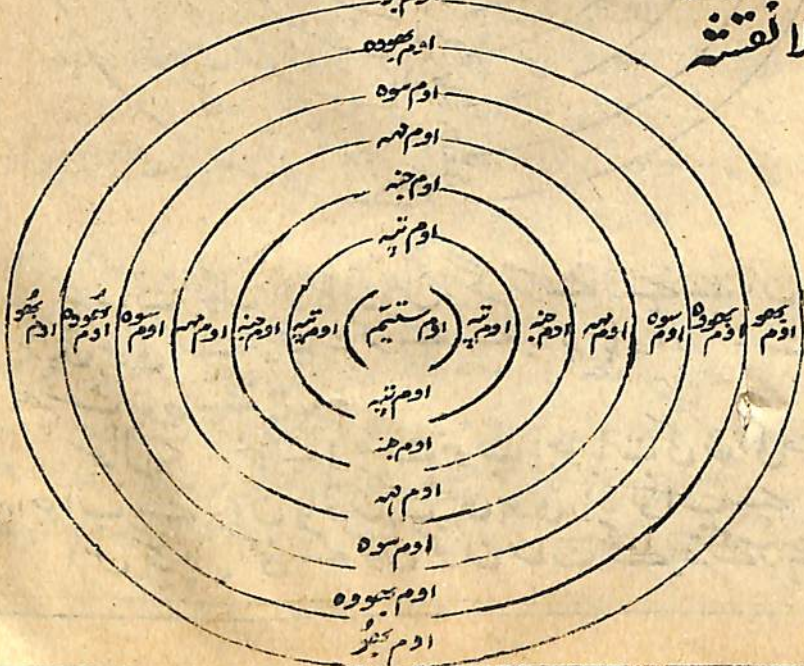 نقشہ
اوم بھووہ
اوم سوہ
اوم مہہ
اوم جنہ
اوم تپہ
اوم بھو اوم بھووہ اوم سوہ اوم مہہ اوم جنہ اوم تپہ (اوم ستیّم) اوم تپہ اوم جنہ اوم مہہ اوم سوہ اوم بھُووہ اوم بھُو
اوم تپہ
اوم جنہ
اوم مہہ
اوم سوہ
اوم بھووہ
اوم بھُو